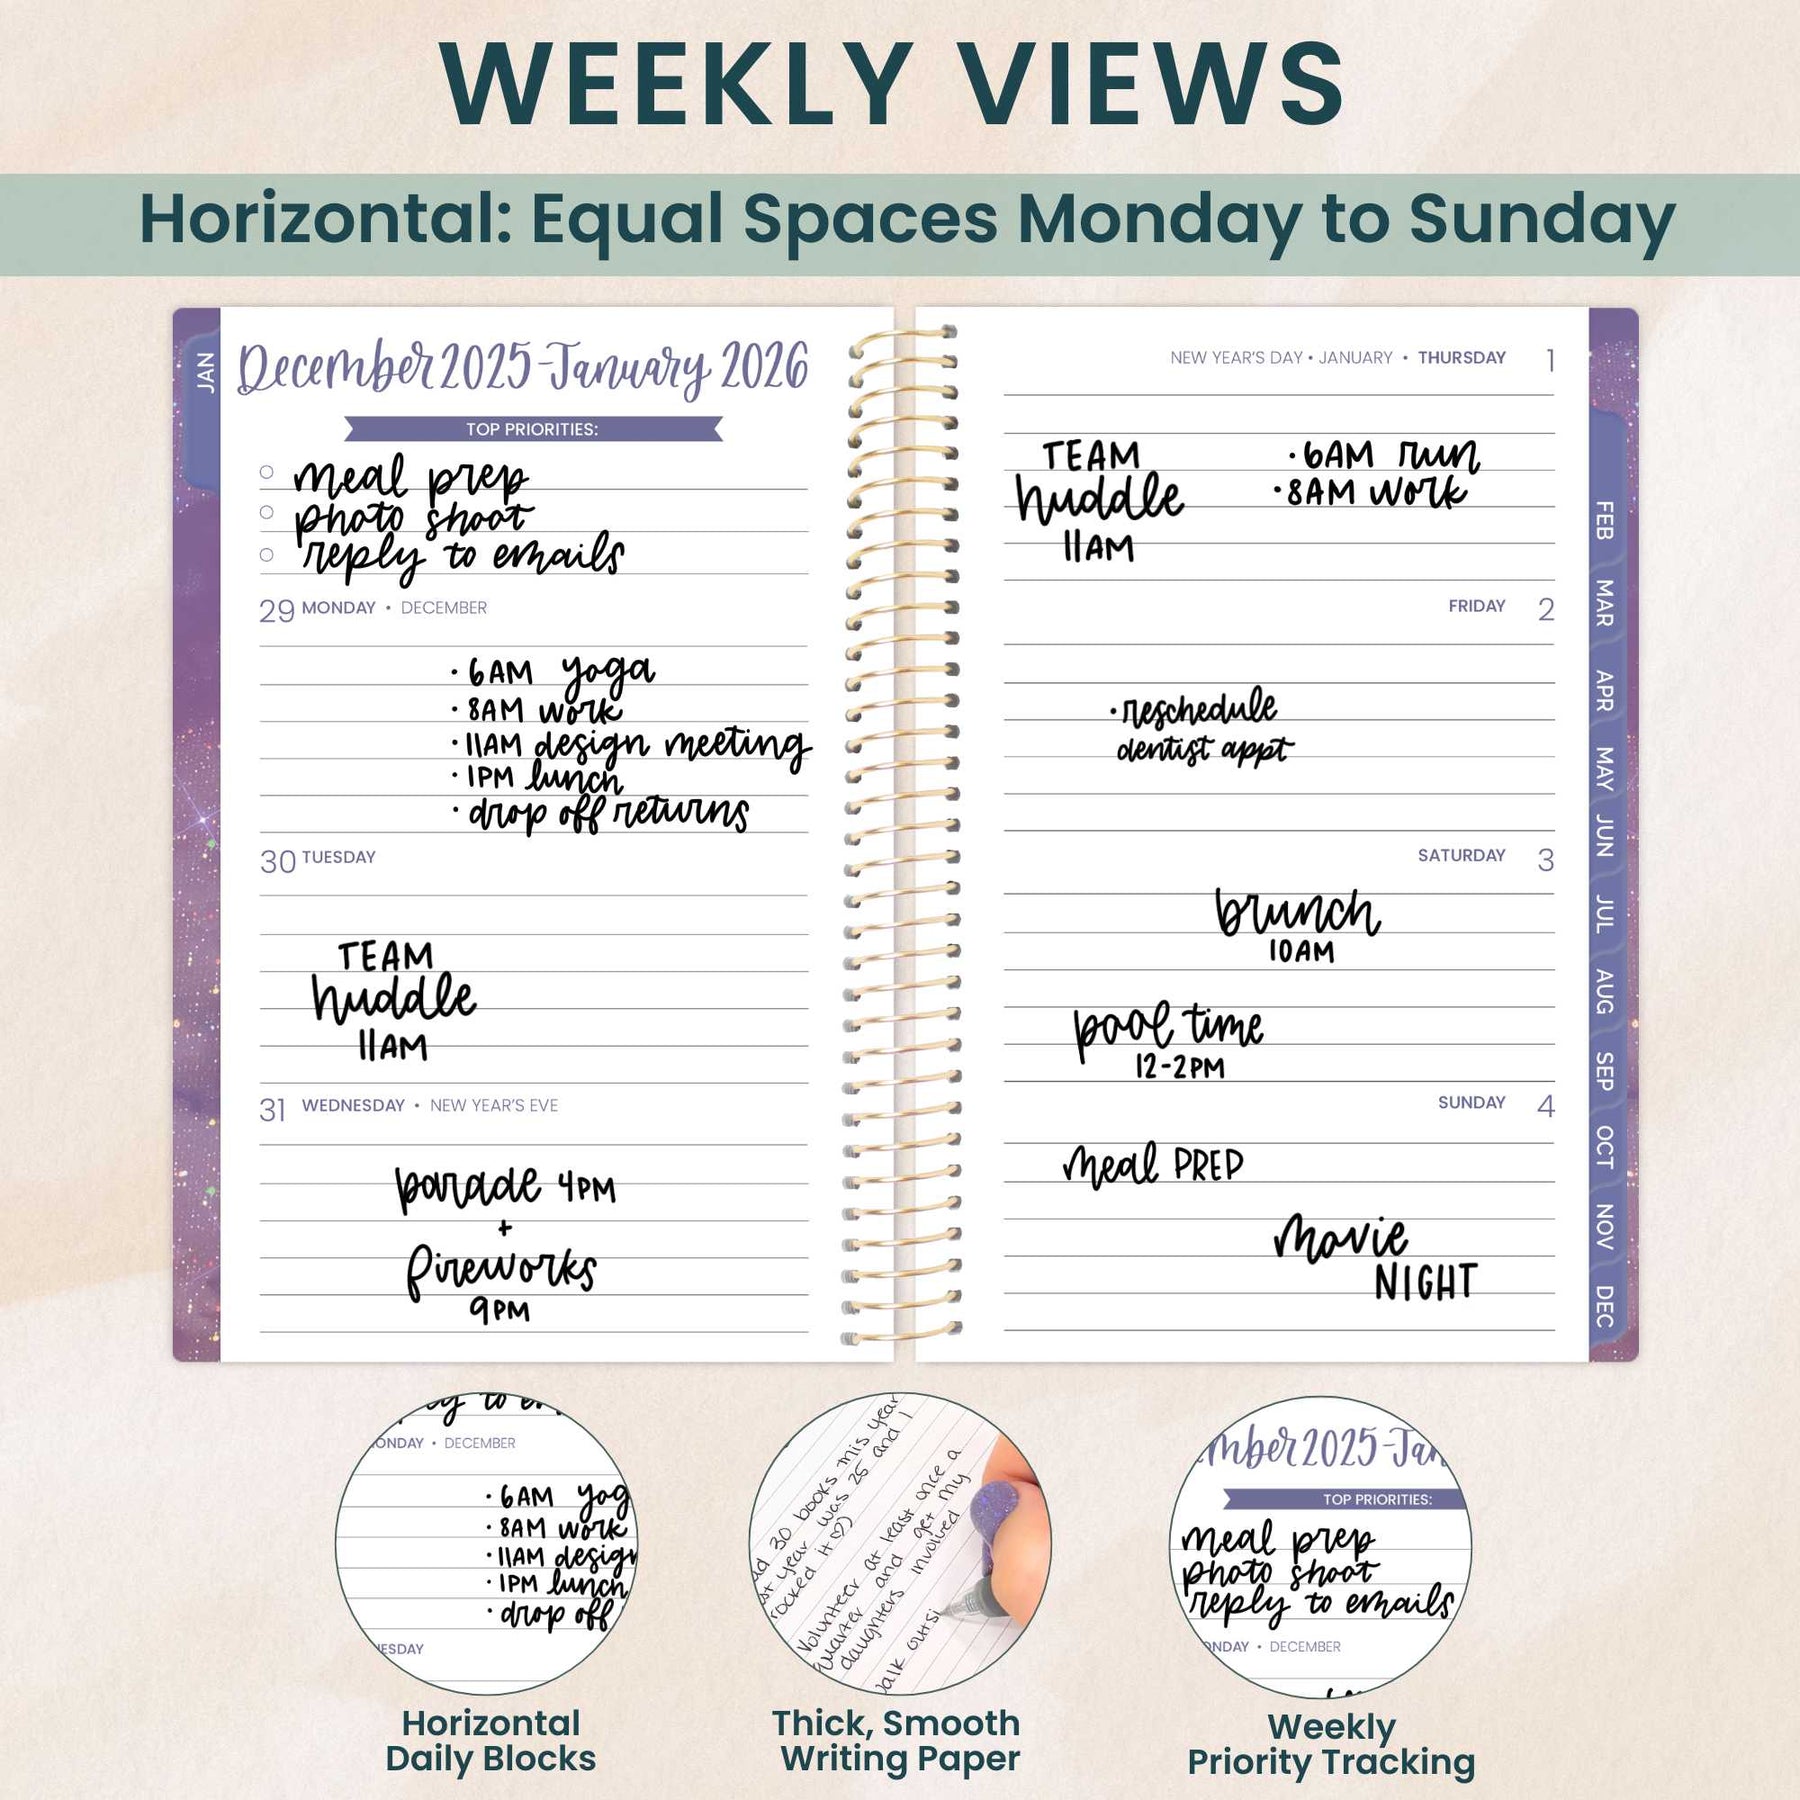 WEEKLY VIEWS
Horizontal: Equal Spaces Monday to Sunday
JAN
December 2025-January 2026
TOP PRIORITIES:
meal prep
photo shoot
reply to emails
29 MONDAY • DECEMBER
• 6AM yoga
• 8AM work
• 11AM design meeting
• 1PM lunch
• drop off returns
30 TUESDAY
TEAM
huddle
11AM
31 WEDNESDAY • NEW YEAR'S EVE
parade 4PM
+
fireworks
9PM
NEW YEAR'S DAY • JANUARY • THURSDAY 1
TEAM
huddle
11AM
• 6AM run
• 8AM work
FRIDAY 2
• reschedule
dentist appt
SATURDAY 3
brunch
10AM
pool time
12-2PM
SUNDAY 4
meal PREP
movie
NIGHT
FEB
MAR
APR
MAY
JUN
JUL
AUG
SEP
OCT
NOV
DEC
to
ONDAY • DECEMBER
• 6AM yog
• 8AM work
• 11AM design
• 1PM lunch
• drop off
ESDAY
Horizontal
Daily Blocks
30 books this year
year was 25 and I
rocked it ♡)
Volunteer at least once a
quarter and get my
daughters involved
outsi
Thick, Smooth
Writing Paper
mber 2025-Jan
TOP PRIORITIES:
meal prep
photo shoot
reply to emails
ONDAY • DECEMBER
Weekly
Priority Tracking